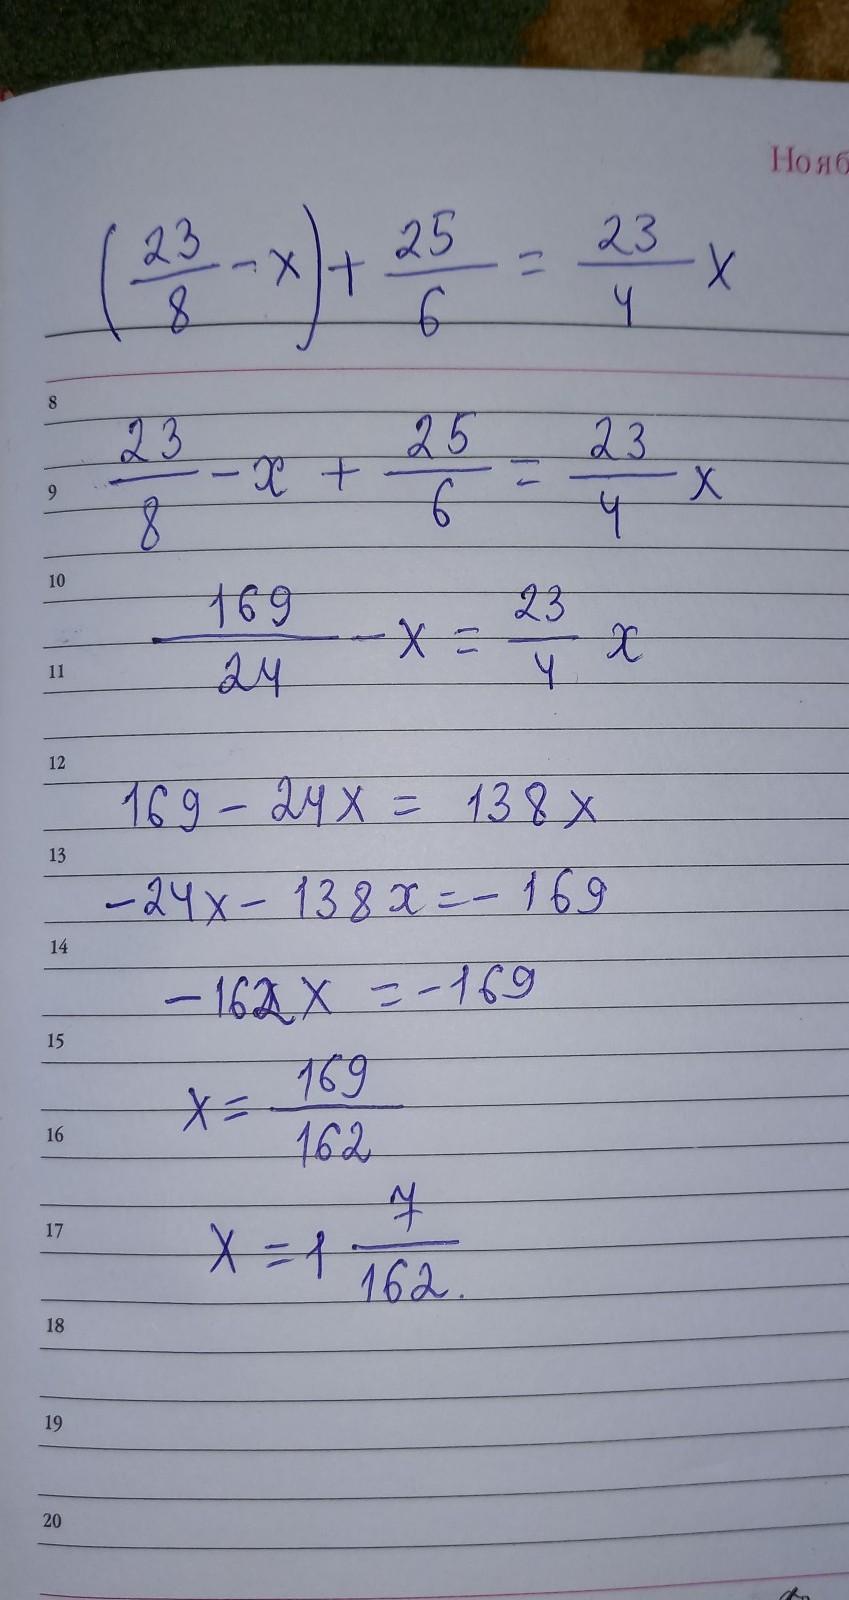 Нояб
(23/8 - x) + 25/6 = 23/4 x
8
23/8 - x + 25/6 = 23/4 x
9
10
169/24 - x = 23/4 x
11
12
169 - 24x = 138x
13
-24x - 138x = -169
14
-162x = -169
15
x = 169/162
16
17
x = 1 7/162.
18
19
20